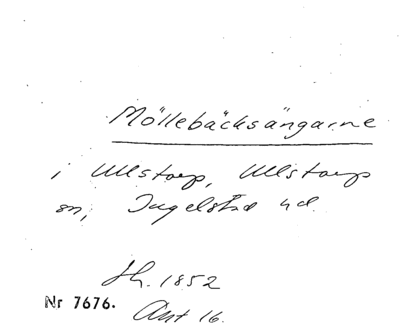 Möllebäcksängarne
i Ullstorp, Ullstorp
sn, Ingelstad hd.
Sh. 1852
Nr 7676.
Akt 16.